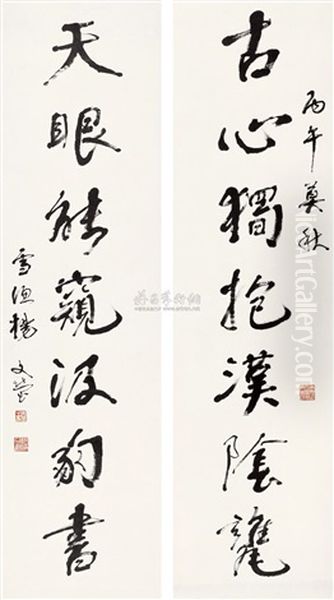 丙午莫秋
古心獨抱漢陰甕
天眼能窺汲冢書
雪漁楊文瑩
www.TheArtGallery.com